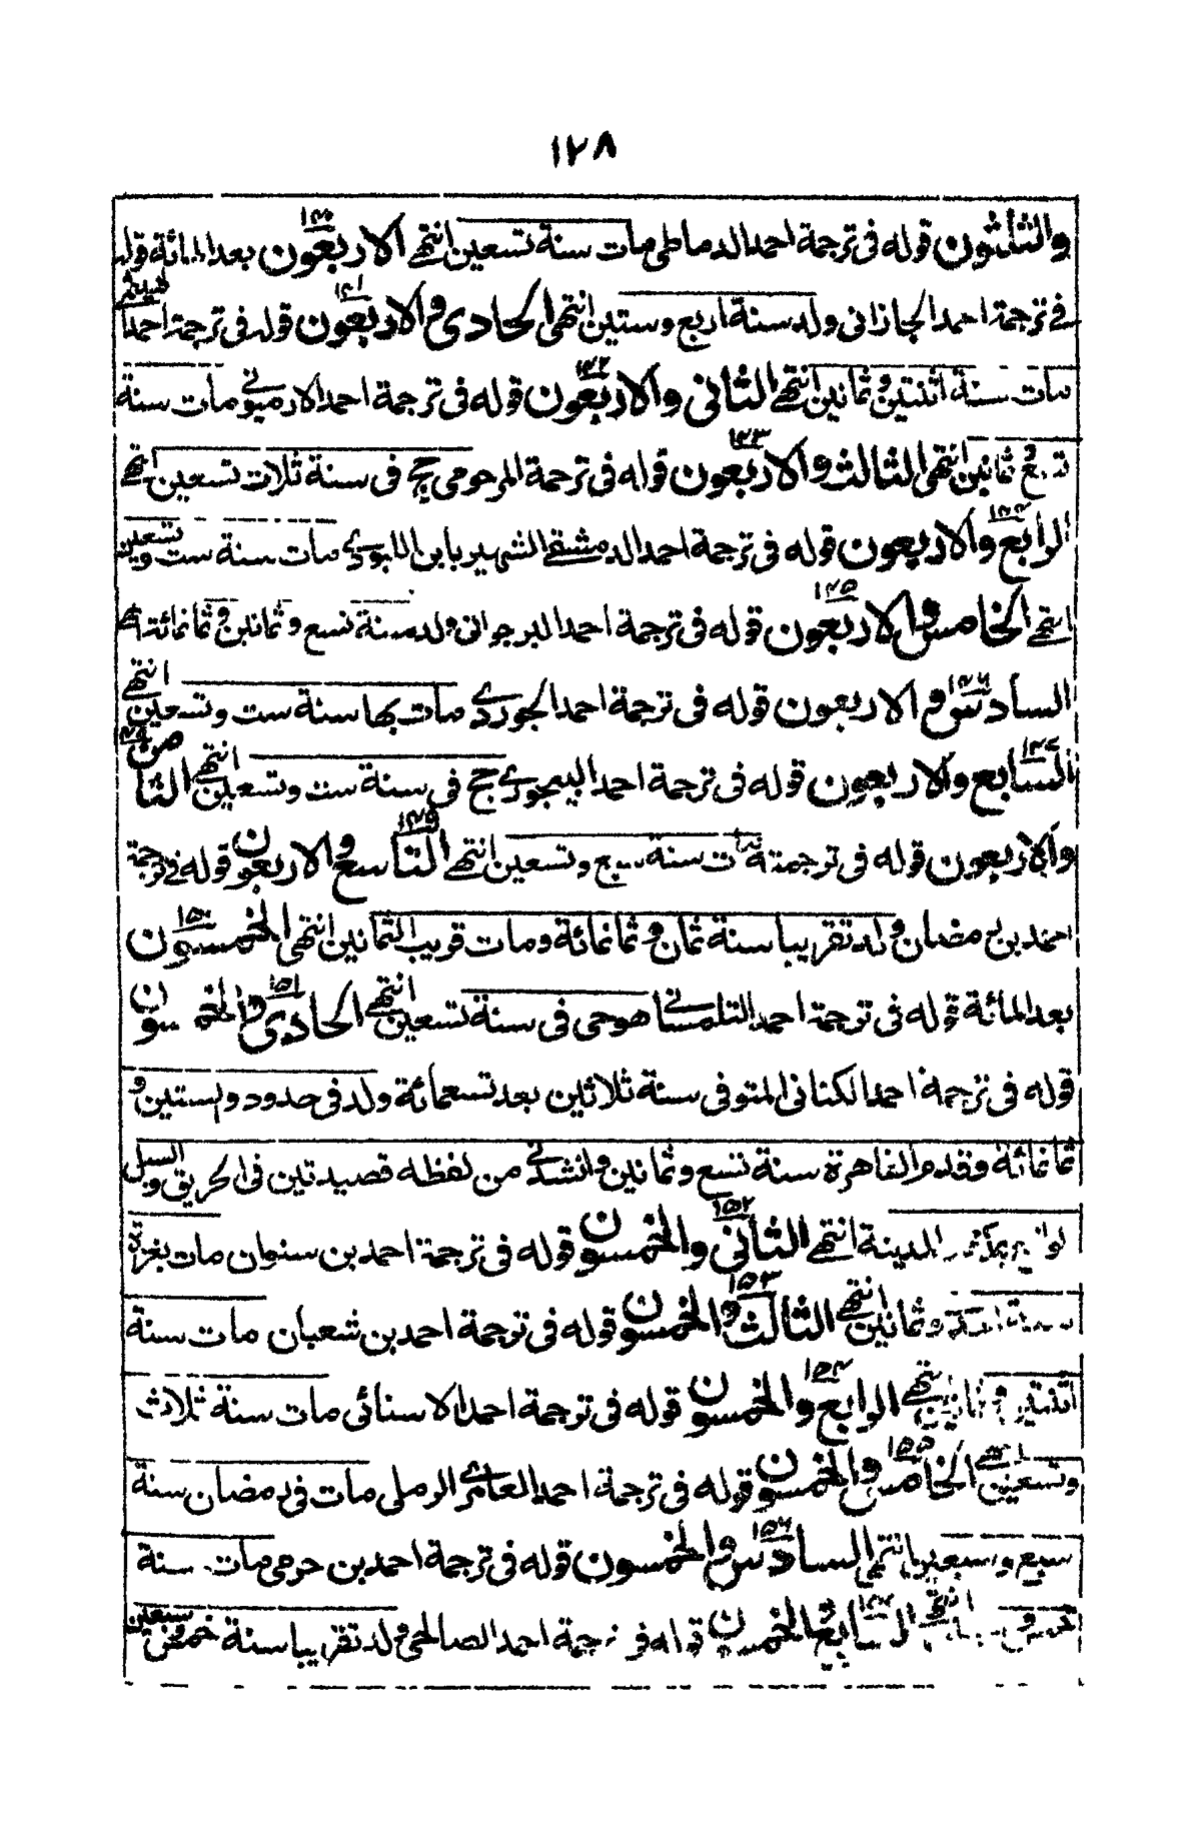 ١٢٨
والثلثون قوله فى ترجمة احمد الدماطى مات سنة تسعين انتهى الاربعون ١٤٠ بعد المائة قوله
فى ترجمة احمد الجازانى ولد سنة اربع وستين انتهى الحادى والاربعون ١٤١ قوله فى ترجمة احمد
مات سنة اثنتين وثمانين انتهى الثانى والاربعون ١٤٢ قوله فى ترجمة احمد الارميونى مات سنة
وثمانين انتهى الثالث والاربعون ١٤٣ قوله فى ترجمة المرحومى حج فى سنة ثلاث تسعين انتهى
الرابع والاربعون ١٤٤ قوله فى ترجمة احمد الدمشقى الشهير بابن اللبودى مات سنة ست وتسعين
انتهى الخامس والاربعون ١٤٥ قوله فى ترجمة احمد البرجوانى ولد سنة تسع وثمانين وثمانمائة انتهى
السادس والاربعون ١٤٦ قوله فى ترجمة احمد الجوردى مات بها سنة ست وتسعين انتهى
السابع والاربعون ١٤٧ قوله فى ترجمة احمد البيجورى حج فى سنة ست وتسعين انتهى الثامن
والاربعون قوله فى ترجمته مات سنة سبع وتسعين انتهى التاسع والاربعون ١٤٩ قوله فى ترجمة
احمد بن رمضان ولد تقريبا سنة ثمان وثمانمائة ومات قريب الثمانين انتهى الخمسون ١٥٠
بعد المائة قوله فى ترجمة احمد التلمسانى هوحى فى سنة تسعين انتهى الحادى والخمسون ١٥١
قوله فى ترجمة احمد الكنانى المتوفى سنة ثلاثين بعد تسعمائة ولد فى حدود والستين و
ثمانمائة وقدم القاهرة سنة تسع وثمانين وانشدنى من لفظه قصيدتين فى الحريق والسيل
المدينة انتهى الثانى والخمسون ١٥٢ قوله فى ترجمة احمد بن سنوان مات بغزة
سنة وثمانين انتهى الثالث والخمسون ١٥٣ قوله فى ترجمة احمد بن شعبان مات سنة
اثنتين وثمانين انتهى الرابع والخمسون ١٥٤ قوله فى ترجمة احمد الاسنائى مات سنة ثلاث
وتسعين انتهى الخامس والخمسون ١٥٥ قوله فى ترجمة احمد العامرى الرملى مات فى رمضان سنة
سبع وسبعين انتهى السادس والخمسون ١٥٦ قوله فى ترجمة احمد بن حرمى مات سنة
خمس انتهى السابع والخمسون قوله فى ترجمة احمد الصالحى ولد تقريبا سنة خمس وسبعين